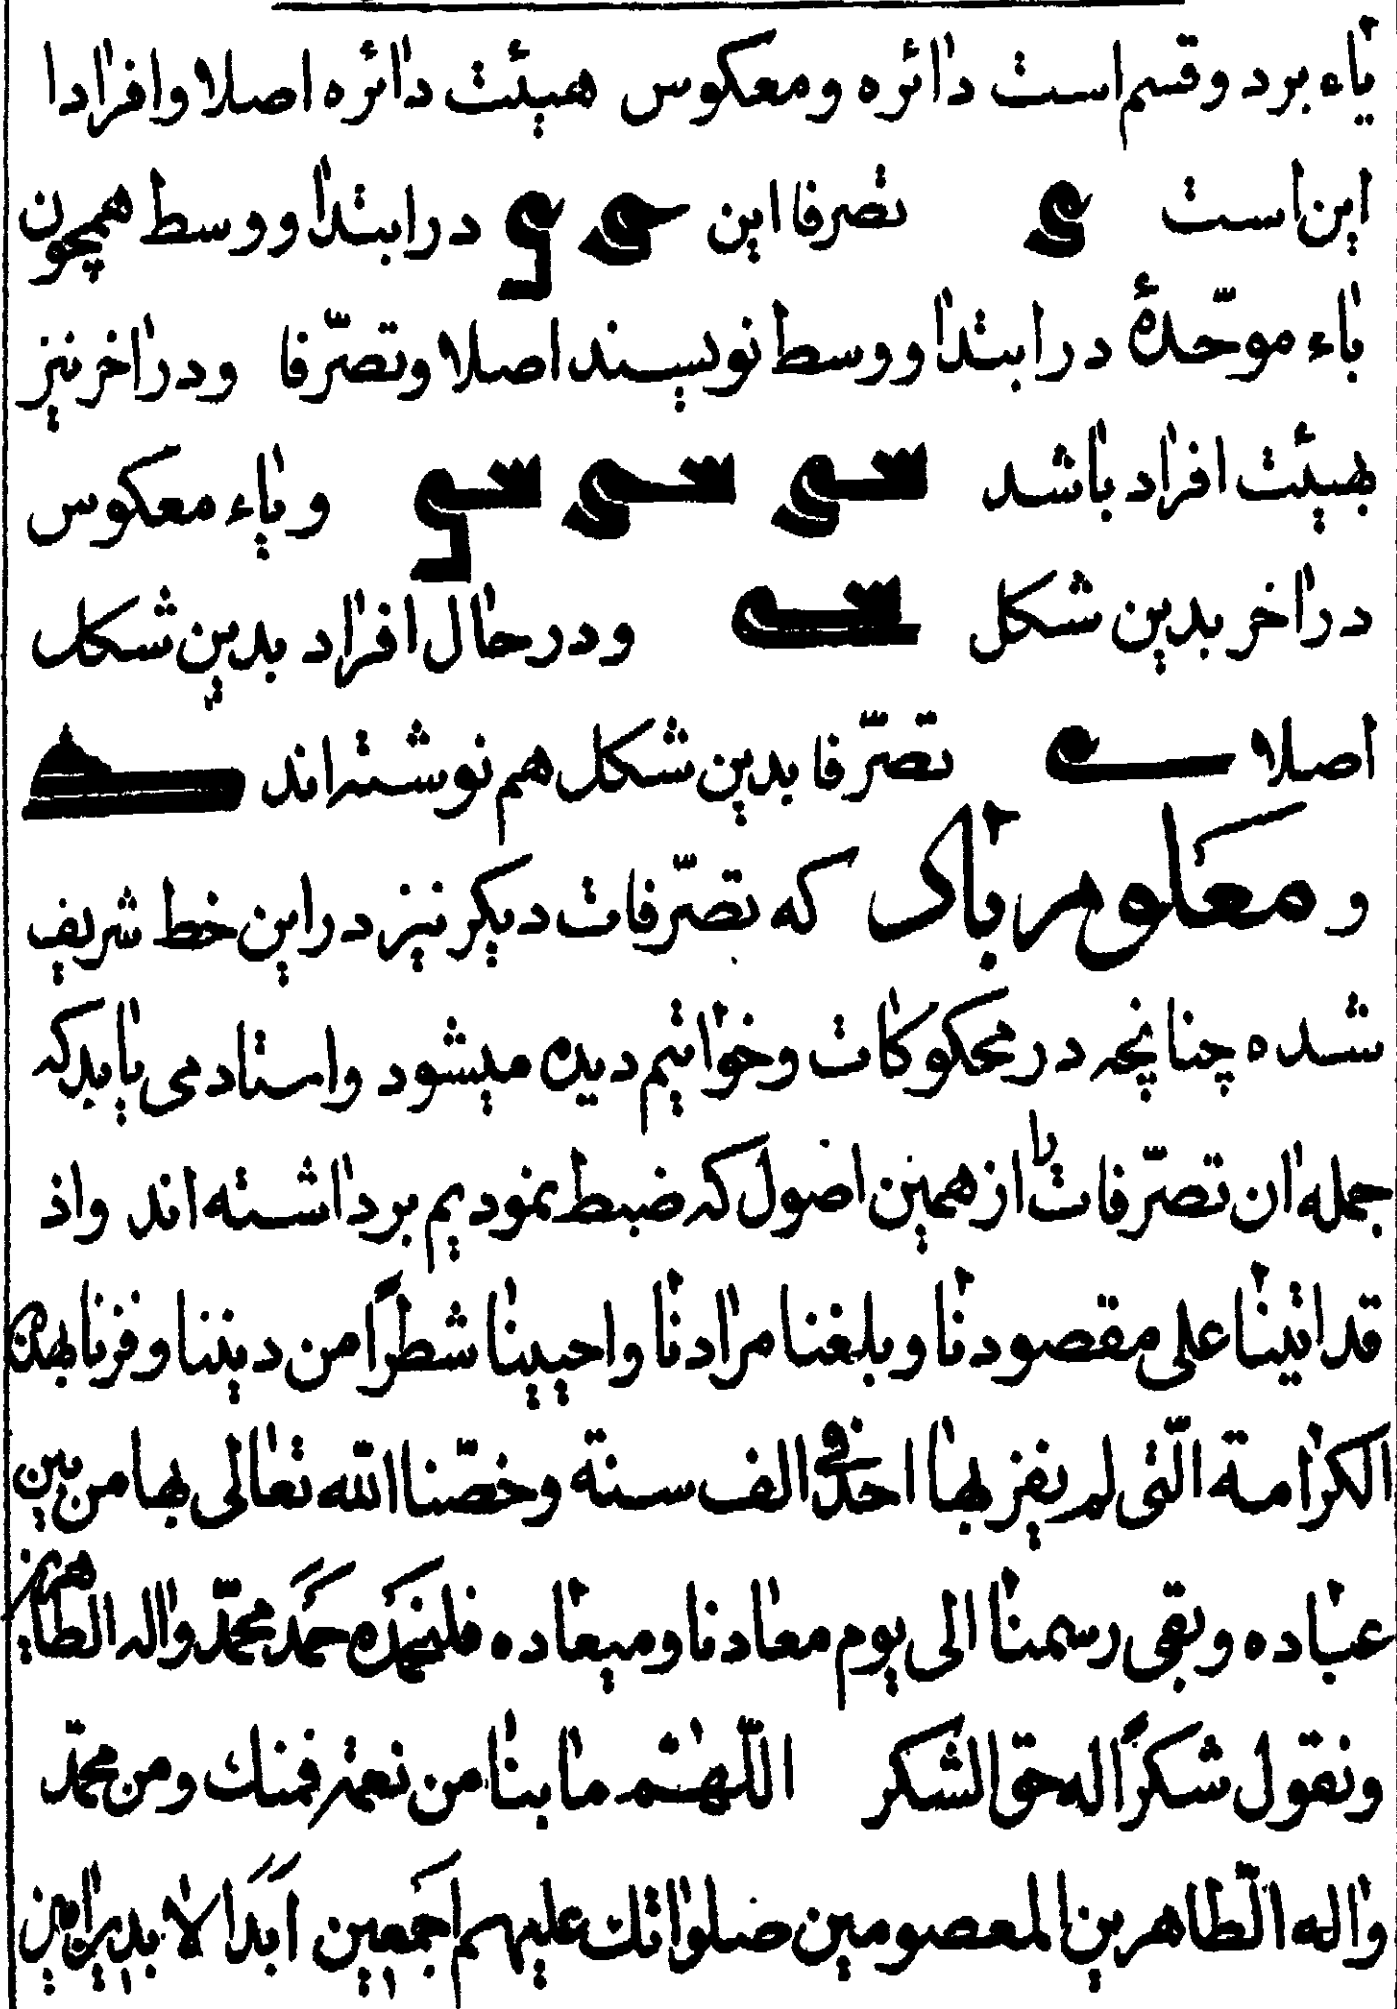 یاء بر دو قسم است دائره و معکوس هیئت دائره اصلا و افرادا
این است ی تصرفا این ی ی در ابتدا و وسط همچون
باء موحّدهٔ در ابتدا و وسط نویسند اصلا و تصرّفا و در اخر نیز
بهیئت افراد باشد سی سی سی و یاء معکوس
در اخر بدین شکل سے و در حال افراد بدین شکل
اصلا ے تصرّفا بدین شکل هم نوشته اند
و معلوم باد که تصرّفات دیکر نیز در این خط شریف
شده چنانچه در محکوکات و خواتیم دیده میشود و استاد می باید که
جمله ان تصرّفات را از همین اصول که ضبط نمودیم بر داشته اند واذ
قد اتینا علی مقصودنا و بلغنا مرادنا و احیینا شطرًا من دیننا و فزنا بهذه
الکرامة الّتی لم یفز بها احد فی الف سنة و خصّنا اللّه تعالی بها من بین
عباده و بقی رسمنا الی یوم معادنا و میعاده فلنحمده حمد محمّد و اله الطاهرین
و نقول شکرًا له حق الشکر اللّهمّ ما بنا من نعمة فمنك و من محمّد
و اله الطّاهرین المعصومین صلواتك علیهم اجمعین ابد الابدین امین